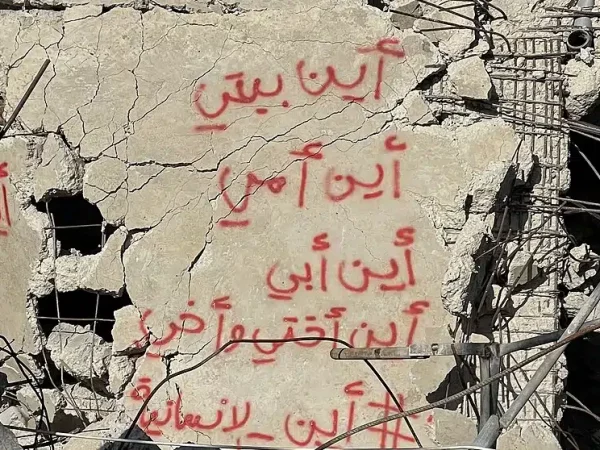 أين بيتي
أين أمي
أين أبي
أين أختي وأخي
#أين_لإنسانية